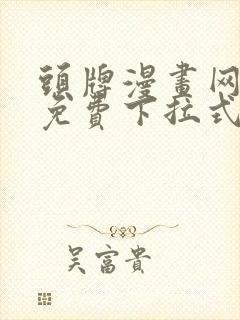 頭牌漫畫网
免費下拉式
吴富貴